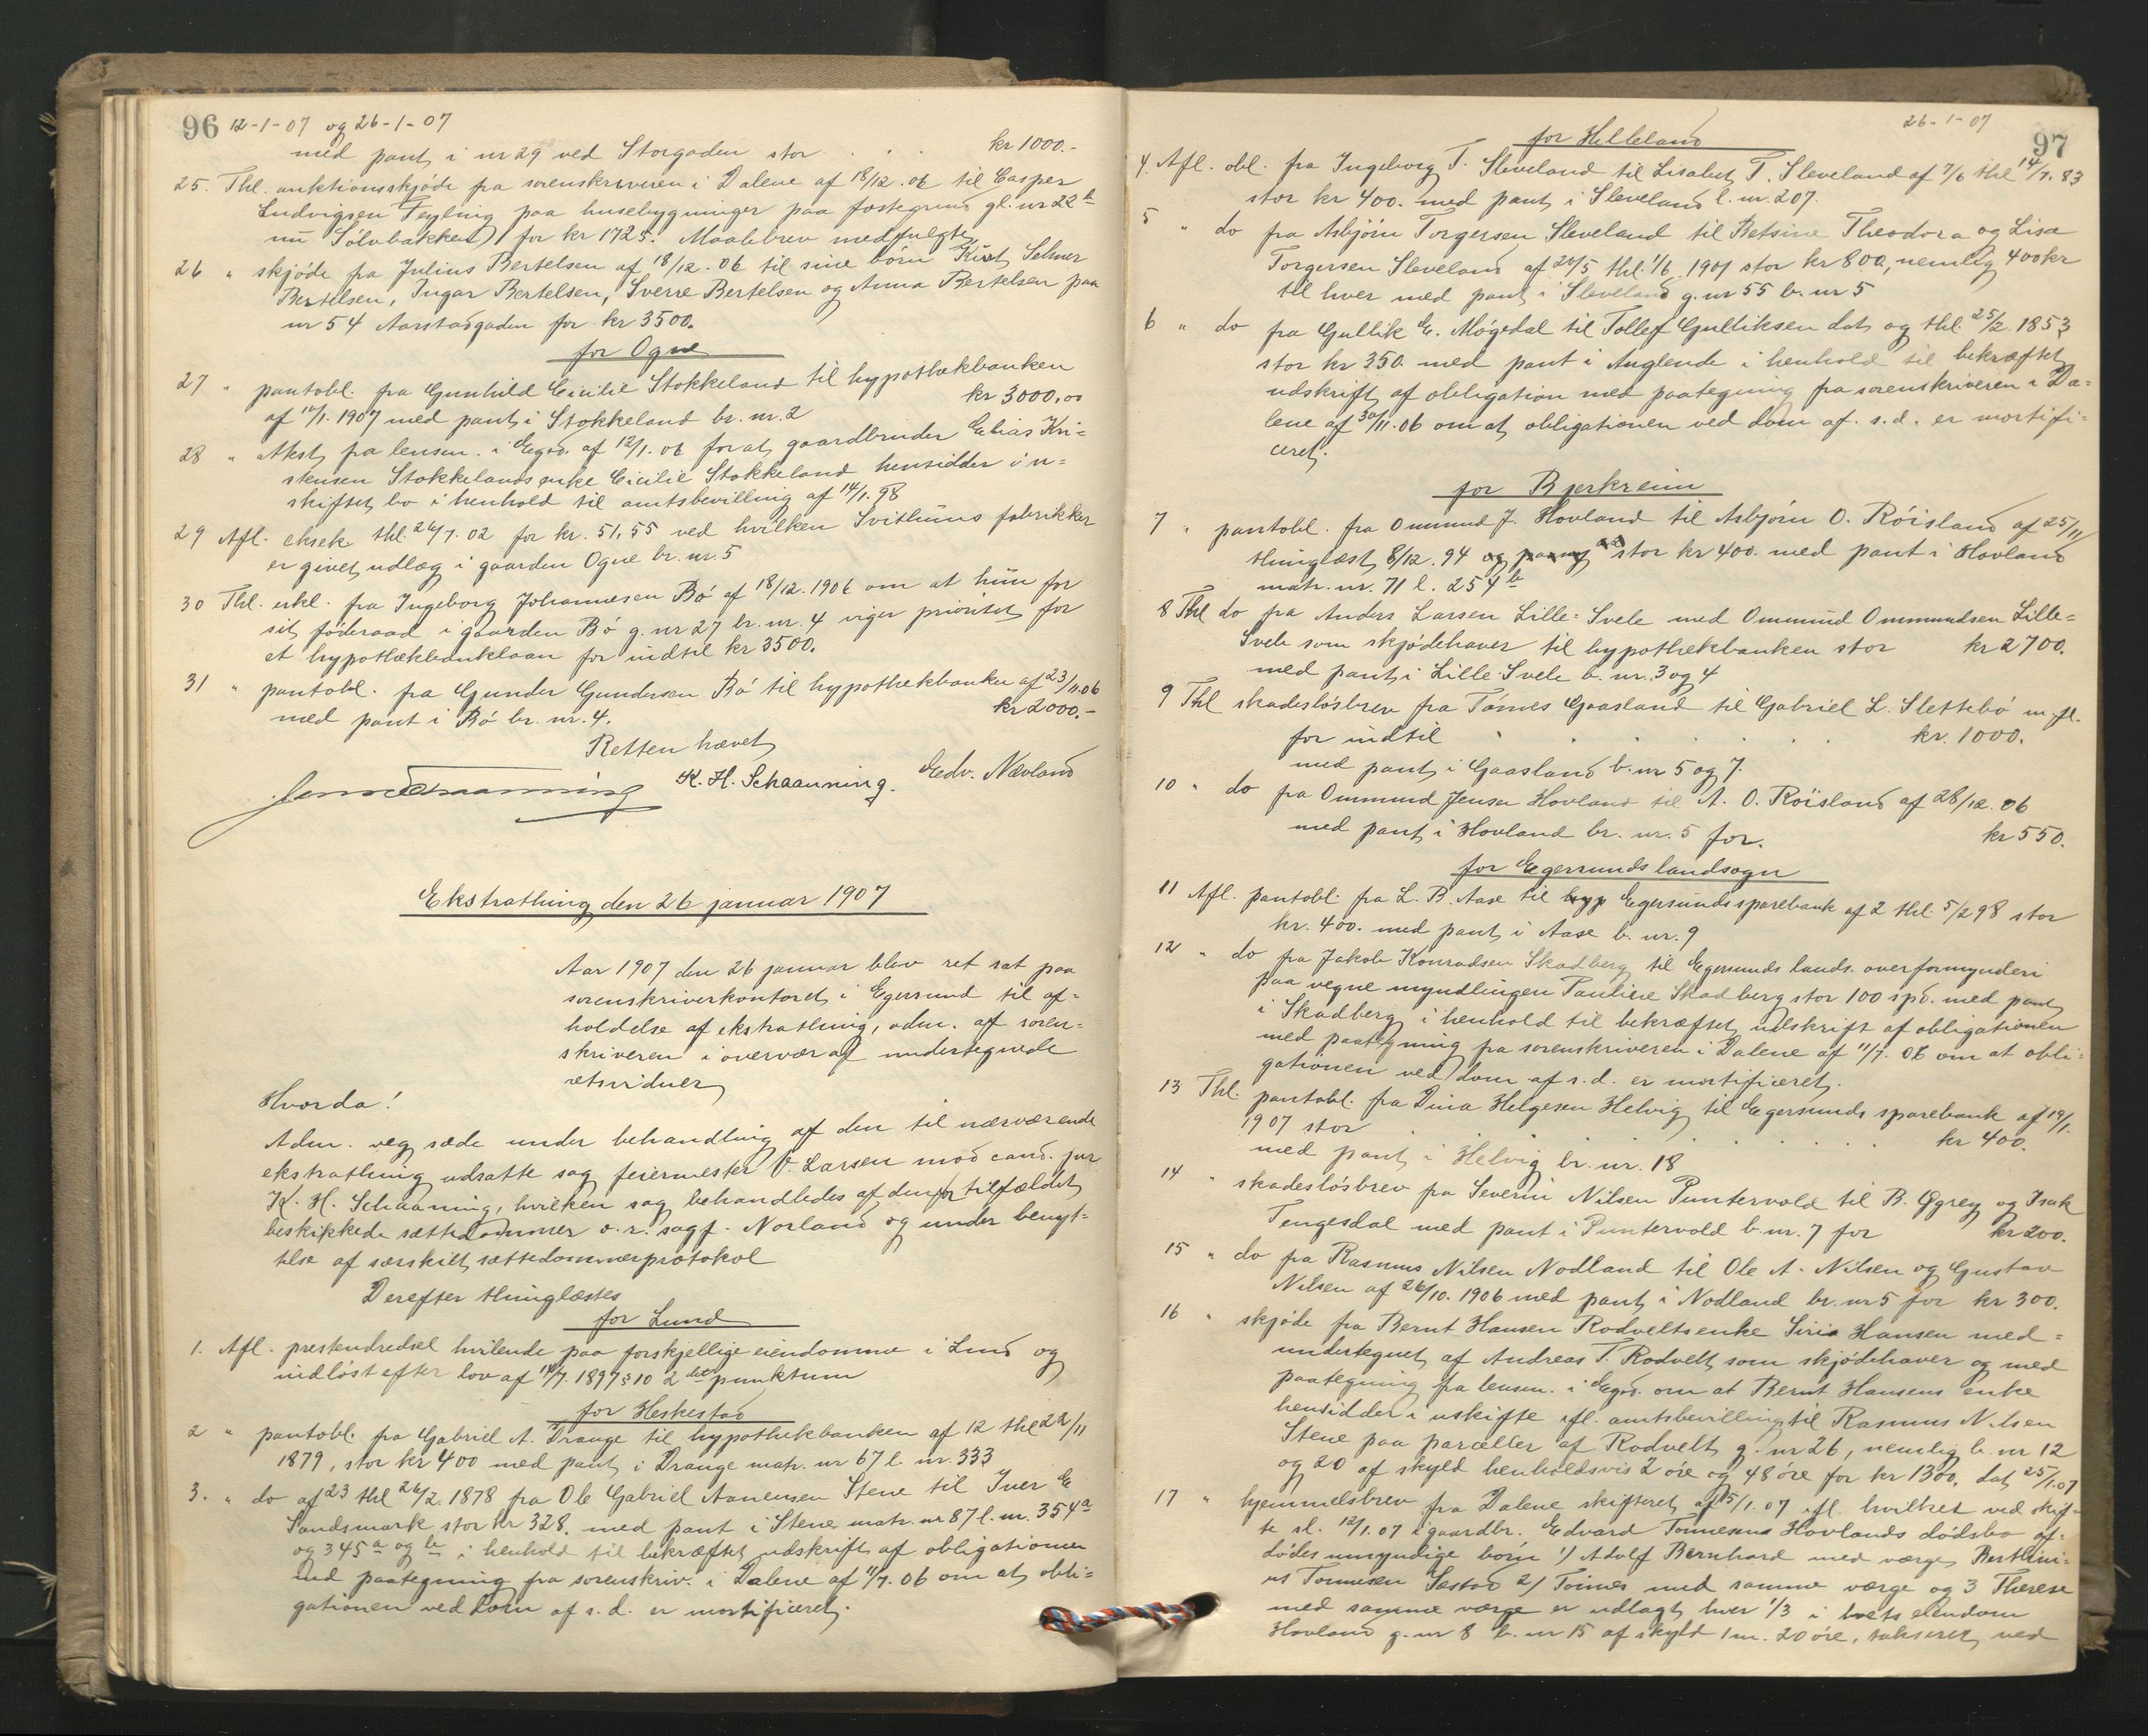 96 12-1-07 og 26-1-07
med pant i nr 29 ved Storgaden stor . . . kr 1000.-
25. Thl. auktionsskjøde fra sorenskriveren i Dalene af 18/12.06 til Casper
Ludvigsen Feyling paa husebygninger paa fæstegrund gl. nr 22 b
nu Sølvbakken) for kr 1725. Maalebrev medfulgte
26 " skjøde fra Julius Bertelsen af 18/12.06 til sine børn Kurt Selmer
Bertelsen, Ingar Bertelsen, Sverre Bertelsen og Anna Bertelsen paa
nr 54 Aarstadgaden for kr 3500.
for Ogne
27 " pantobl. fra Gunhild Cicilie Stokkeland til hypothekbanken
af 10/1.1907 med pant i Stokkeland br. nr. 2 kr 3000,00
28 " attest fra lensm. i Egsd. af 12/1.06 for at gaardbruder Elias Kri-
stensen Stokkelands enke Cicilie Stokkeland hensidder i u-
skiftet bo i henhold til amtsbevilling af 14/1.98
29 Afl. eksek. thl. 26/7.02 for kr. 51,55 ved hvilken Svithuns fabrikker
er givet udlæg i gaarden Ogne br. nr. 5
30 Thl. erkl. fra Ingeborg Johannesen Bø af 18/12.1906 om at hun for
sit føderaad i gaarden Bø g. nr 27 br. nr. 4 viger prioritet for
et hypothekbanklaan for indtil kr 3500.
31 " pantobl. fra Gunder Gundersen Bø til hypothekbanken af 23/11.06
med pant i Bø br. nr. 4. kr 2000.-
Retten hævet
K. H. Schaanning. Edv. Nævland
Ekstrathing den 26 januar 1907
Aar 1907 den 26 januar blev ret sat paa
sorenskriverkontoret i Egersund til af-
holdelse af ekstrathing, adm. af soren-
skriveren i overvær af undertegnede
retsvidner
Hvorda!
Adm. veg sæde under behandling af den til nærværende
ekstrathing udsatte sag feiermester V. Larsen mod cand. jur
K. H. Schaaning, hvilken sag behandledes af den for tilfældet
beskikkede sættedommer o. r. sagf. Norland og under benyt-
telse af særskilt sættedommerprotokol
Derefter thinglæstes
for Lund
1. Afl. presteudredsel hvilende paa forskjellige eiendomme i Lund og
indløst efter lov af 14/7.1897 § 10 2 det punktum
for Heskestad
2 " pantobl. fra Gabriel A. Drange til hypothekbanken af 12 thl 22/11
1879, stor kr 400 med pant i Drange matr. nr 67 l. nr. 333
3. " do af 23 thl 26/2.1878 fra Ole Gabriel Aanensen Stene til Iver E
Sandsmark stor kr 328. med pant i Stene matr. nr 87 l. nr. 354 a
og 345 a og b i henhold til bekræftet udskrift af obligationen
med paategning fra sorenskriv. i Dalene af 11/7.06 om at obli-
gationen ved dom af s. d. er mortificeret.
26-1-07
97
for Helleland
4. Afl. obl. fra Ingeborg T. Sleveland til Lisabet T. Sleveland af 7/6 thl 14/7.83
stor kr 400. med pant i Sleveland l. nr. 207.
5 " do fra Asbjørn Torgersen Sleveland til Betsine Theodora og Lisa
Torgersen Sleveland af 24/5 thl. 1/6 1901 stor kr 800, nemlig 400 kr
til hver med pant i Sleveland g. nr 55 b. nr 5
6 " do fra Gullik E. Møgedal til Tollef Gulliksen dat. og thl. 25/2.1853
stor kr 350 med pant i Auglende i henhold til bekræftet
udskrift af obligation med paategning fra sorenskriveren i Da-
lene af 30/11.06 om at obligationen ved dom af s. d. er mortifi-
ceret.
for Bjerkreim
7 " pantobl. fra Ommund J. Hovland til Asbjørn O. Røisland af 25/11
thinglæst 8/12.94 stor kr 400. med pant i Hovland
matr. nr. 71 l. 254 b
8 Thl do fra Anders Larsen Lille-Svele med Ommund Ommundsen Lille-
Svele som skjødehaver til hypothekbanken stor kr 2700.
med pant i Lille Svele b. nr. 3 og 4
9 Thl skadesløsbrev fra Tønnes Gaasland til Gabriel L. Slettebø m. fl.
for indtil . . . . . . kr. 1000.
med pant i Gaasland b. nr 5 og 7.
10 " do fra Ommund Jensen Hovland til A. O. Røisland af 28/12.06
med pant i Hovland br. nr. 5 for. kr 550.
for Egersunds landsogn
11 Afl. pantobl. fra L. B. Aase til hyp Egersunds sparebank af 2 thl. 5/2 98 stor
kr. 400. med pant i Aase b. nr. 9
12 " do fra Jakob Konradsen Skadberg til Egersunds lands. overformynderi
paa vegne myndlingen Pauline Skadberg stor 100 spd. med pant
i Skadberg i henhold til bekræftet udskrift af obligationen
med paategning fra sorenskriveren i Dalene af 11/7.06 om at obli-
gationen ved dom af s. d. er mortificeret.
13 Thl. pantobl. fra Dina Helgesen Helvig til Egersunds sparebank af 19/1.
1907 stor . . . . . . kr 400.
med pant i Helvig br. nr. 18
14 " skadesløsbrev fra Severin Nilsen Puntervold til B. Øgrey og Isak
Tengesdal med pant i Puntervold b. nr. 7 for kr 200.
15 " do fra Rasmus Nilsen Nodland til Ole A. Nilsen og Gustav
Nilsen af 26/10.1906 med pant i Nodland br. nr 5 for kr 300.
16 " skjøde fra Bernt Hansen Rodvelts enke Siria Hansen med-
undertegnet af Andreas T. Rodvelt som skjødehaver og med
paategning fra lensm. i Egsd. om at Bernt Hansens enke
hensidder i uskifte ifl. amtsbevilling til Rasmus Nilsen
Stene paa parceller af Rodvelt g. nr 26, nemlig b. nr 12
og 20 af skyld henholdsvis 2 øre og 48 øre for kr 1300. dat 25/1.07
17 " hjemmelsbrev fra Dalene skifteret af 15/1.07 ifl. hvilket ved skif-
te sl. 12/1.07 i gaardbr. Edvard Tønnesens Hovlands dødsbo af-
dødes umyndige børn 1) Adolf Bernhard med værge Berthini-
us Tønnesen Sæstad 2) Tønnes med samme værge og 3 Therese
med samme værge er udlagt hver 1/3 i boets eiendom
Hovland g. nr 8 b. nr 15 af skyld 1 m. 20 øre, takseret ved